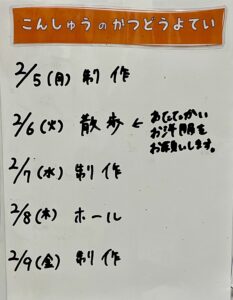 こんしゅうのかつどうよてい
2/5(月) 制作
2/6(火) 散歩 ←
お洋服を
お願いします。
2/7(水) 制作
2/8(木) ホール
2/9(金) 制作